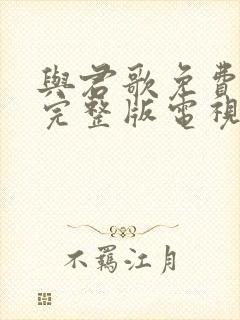 與君歌免費
完整版電視
不羈江月